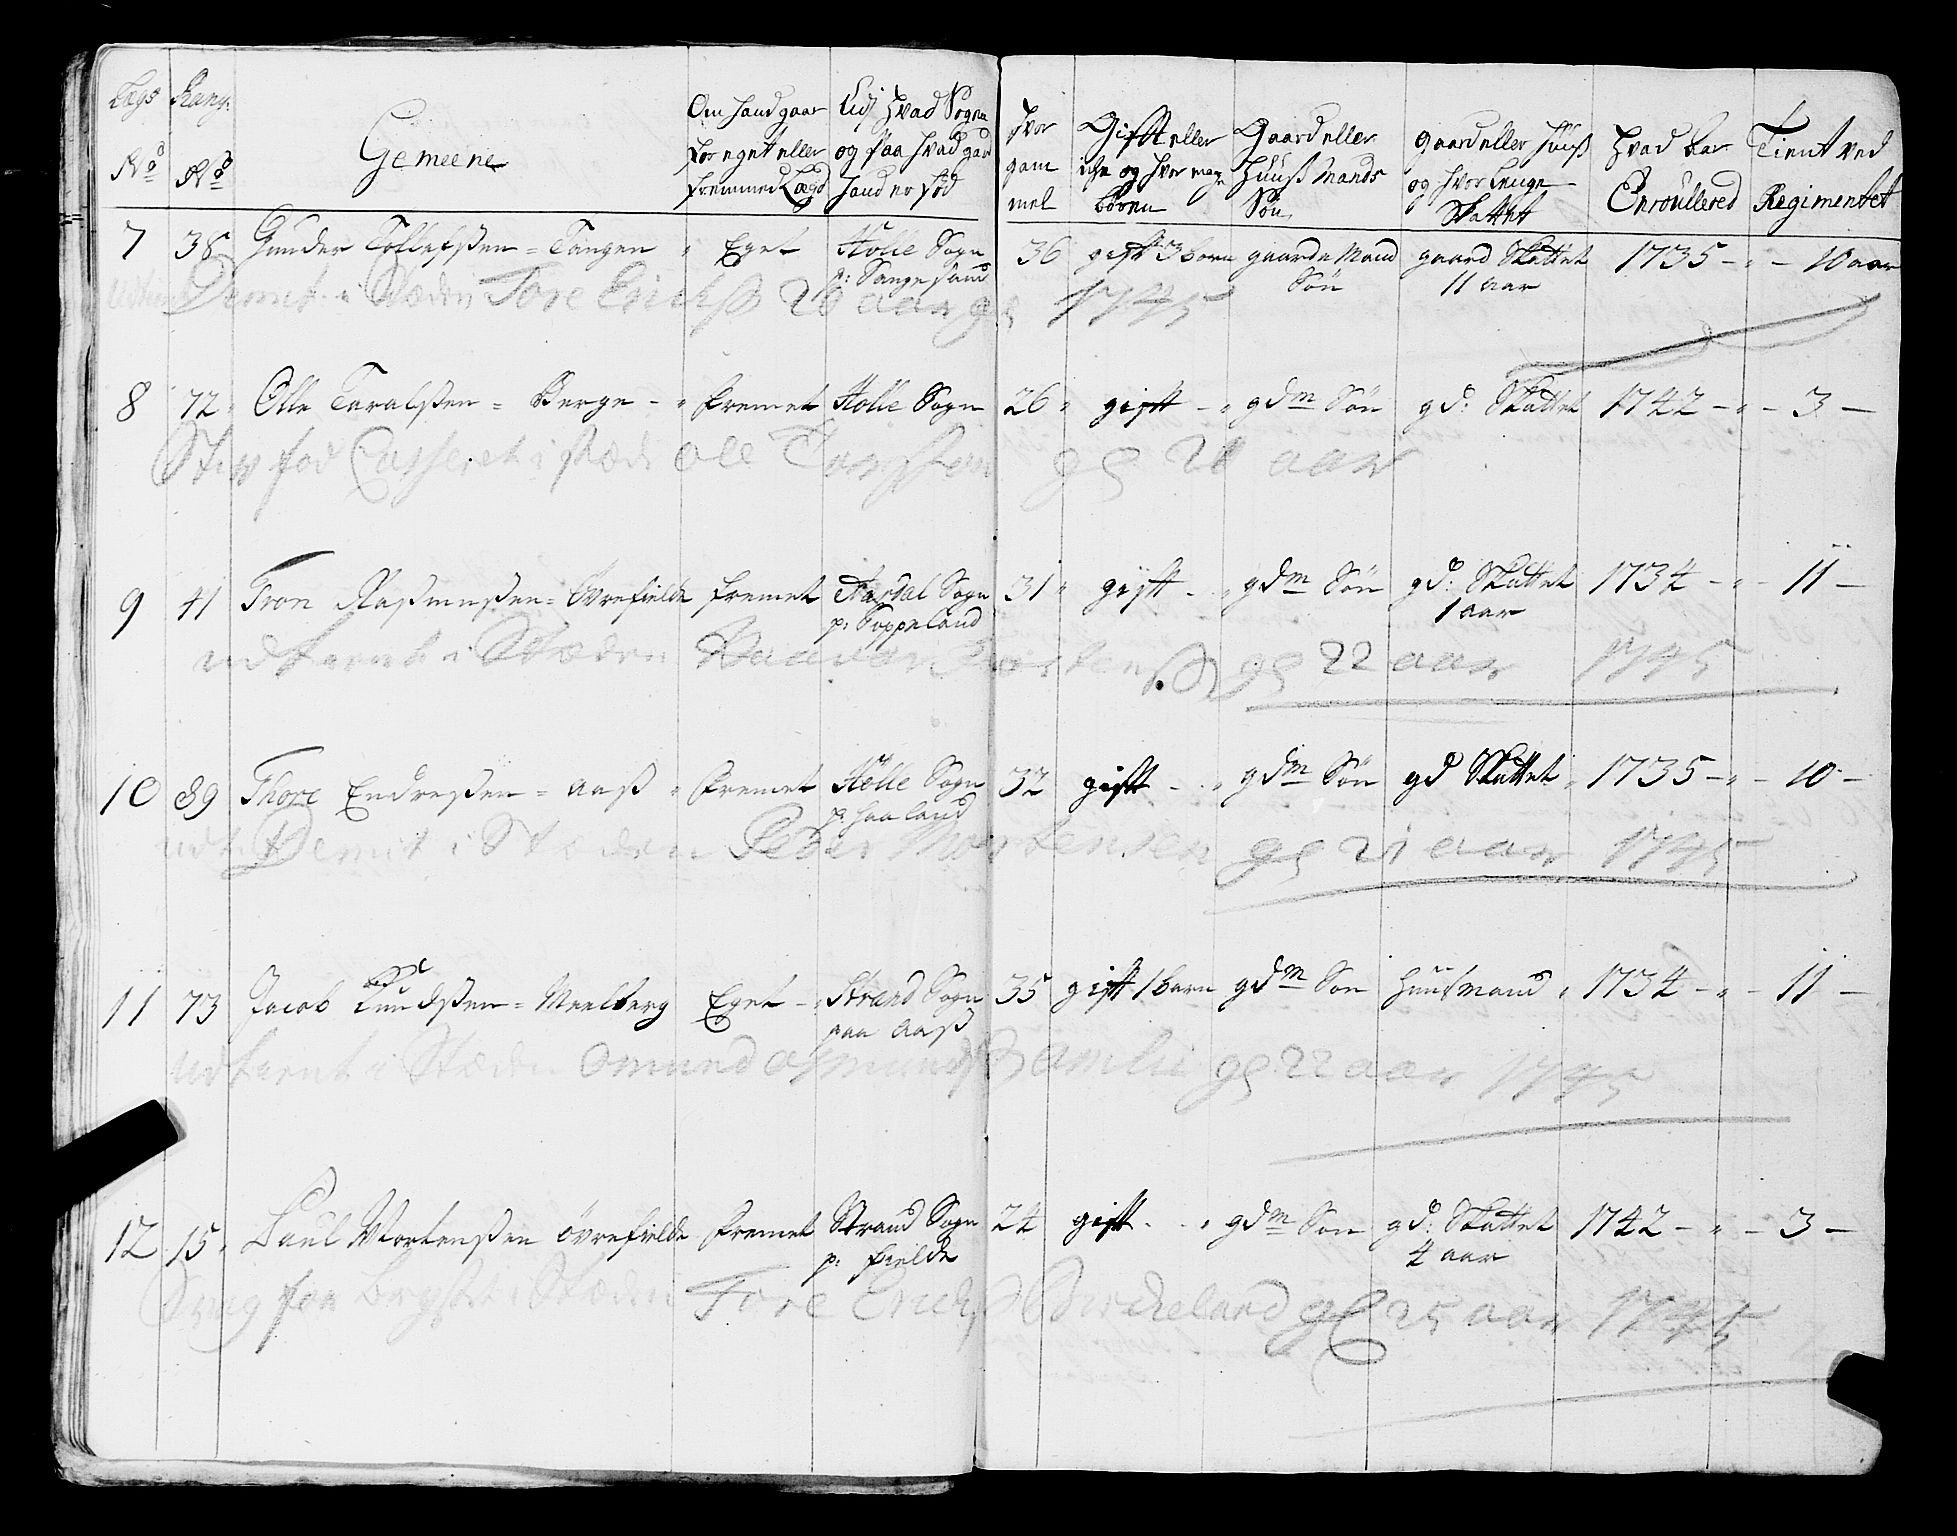 Lægs No | Rang: No | Gemeene | Om hand gaar for eget eller fremmed Lægd | Udj hvad Sogn og paa hvad gaar hand er fød | Hvor gam mel | Gift eller icke og hvor mange børn | Gaard eller Huuß Mands Søn | gaard eller Huuß og hvor lenge Skattet | Hvad aar Enroullered | Tient ved Regimentet
7 | 38 | Gunder Tollefsen = Tangen | Eget | Holle Sogn p: Songesand | 36 | gift 3 born | gaarde Mand Søn | gaard Skattet 11 aar | 1735 | 10 aar
Demit i Stæden Tore Erichß 26 aar gl 1745
8 | 72 | Olle Taralßen = Berge | fremet | Holle Sogn | 26 | gift | gdm Søn | gd: Skattet | 1742 | 3
Stiv fod Casseret i stæd Ole gl 21 aar
9 | 41 | Tron Rasmusßen = Øvrefielde | fremet | Aardal Sogn p: Soppeland | 31 | gift | gdm Søn | gd: Skattet 1 aar | 1734 | 11
udtient i Stæden gl 22 aar 1745
10 | 89 | Thore Endreßen = Aaß | fremet | Holle Sogn p: Haaland | 32 | gift | gdm Søn | gd Skattet | 1735 | 10
Demit i Stæden Peder Mortensen gl 21 aar 1745
11 | 73 | Jacob Knudßen = Meelberg | Eget | Strand Sogn paa Aaß | 35 | gift 1 barn | gdm Søn | Huusmand | 1734 | 11
udtient i Stæden Omund Asmundß Amlie gl 22 aar 1745
12 | 15 | Paul Mortenßen øvrefielde | fremet | Strand Sogn p: Fielde | 24 | gift | gdm Søn | gd: Skattet 4 aar | 1742 | 3
Svag for bryst i Stæden Tore Erichß Birckeland gl 25 aar 1745